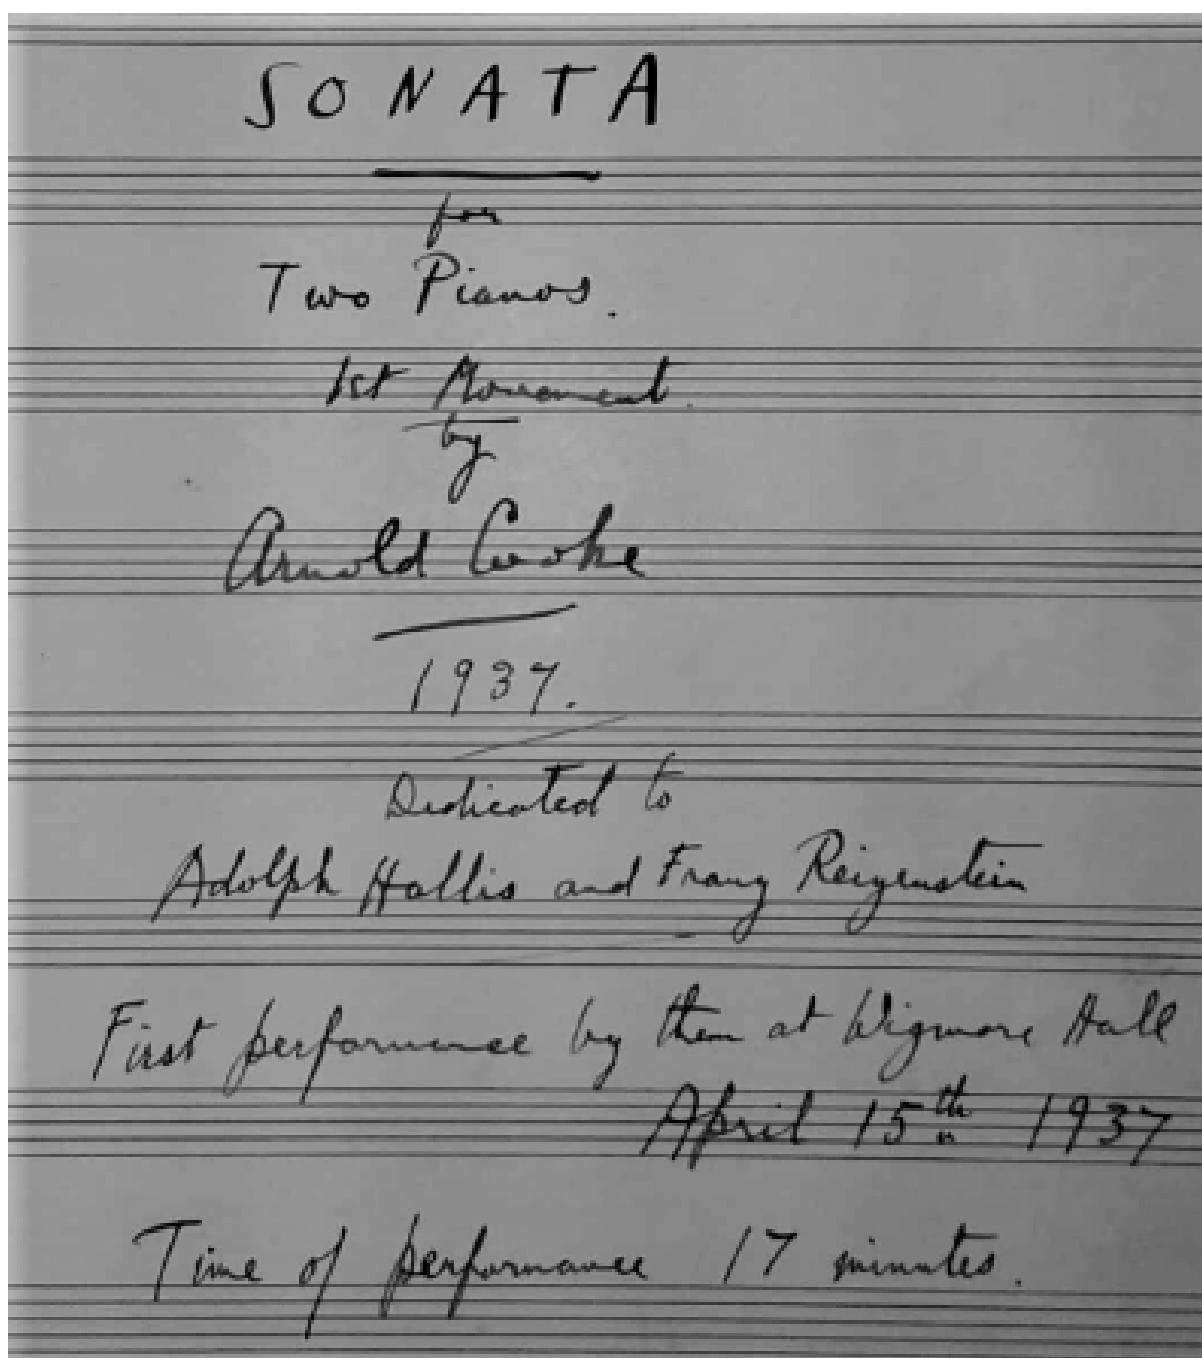 SONATA
for
Two Pianos.
1st Movement.
by
Arnold Cooke
1937.
Dedicated to
Adolph Hallis and Franz Reizenstein
First performance by them at Wigmore Hall
April 15th 1937
Time of performance 17 minutes.